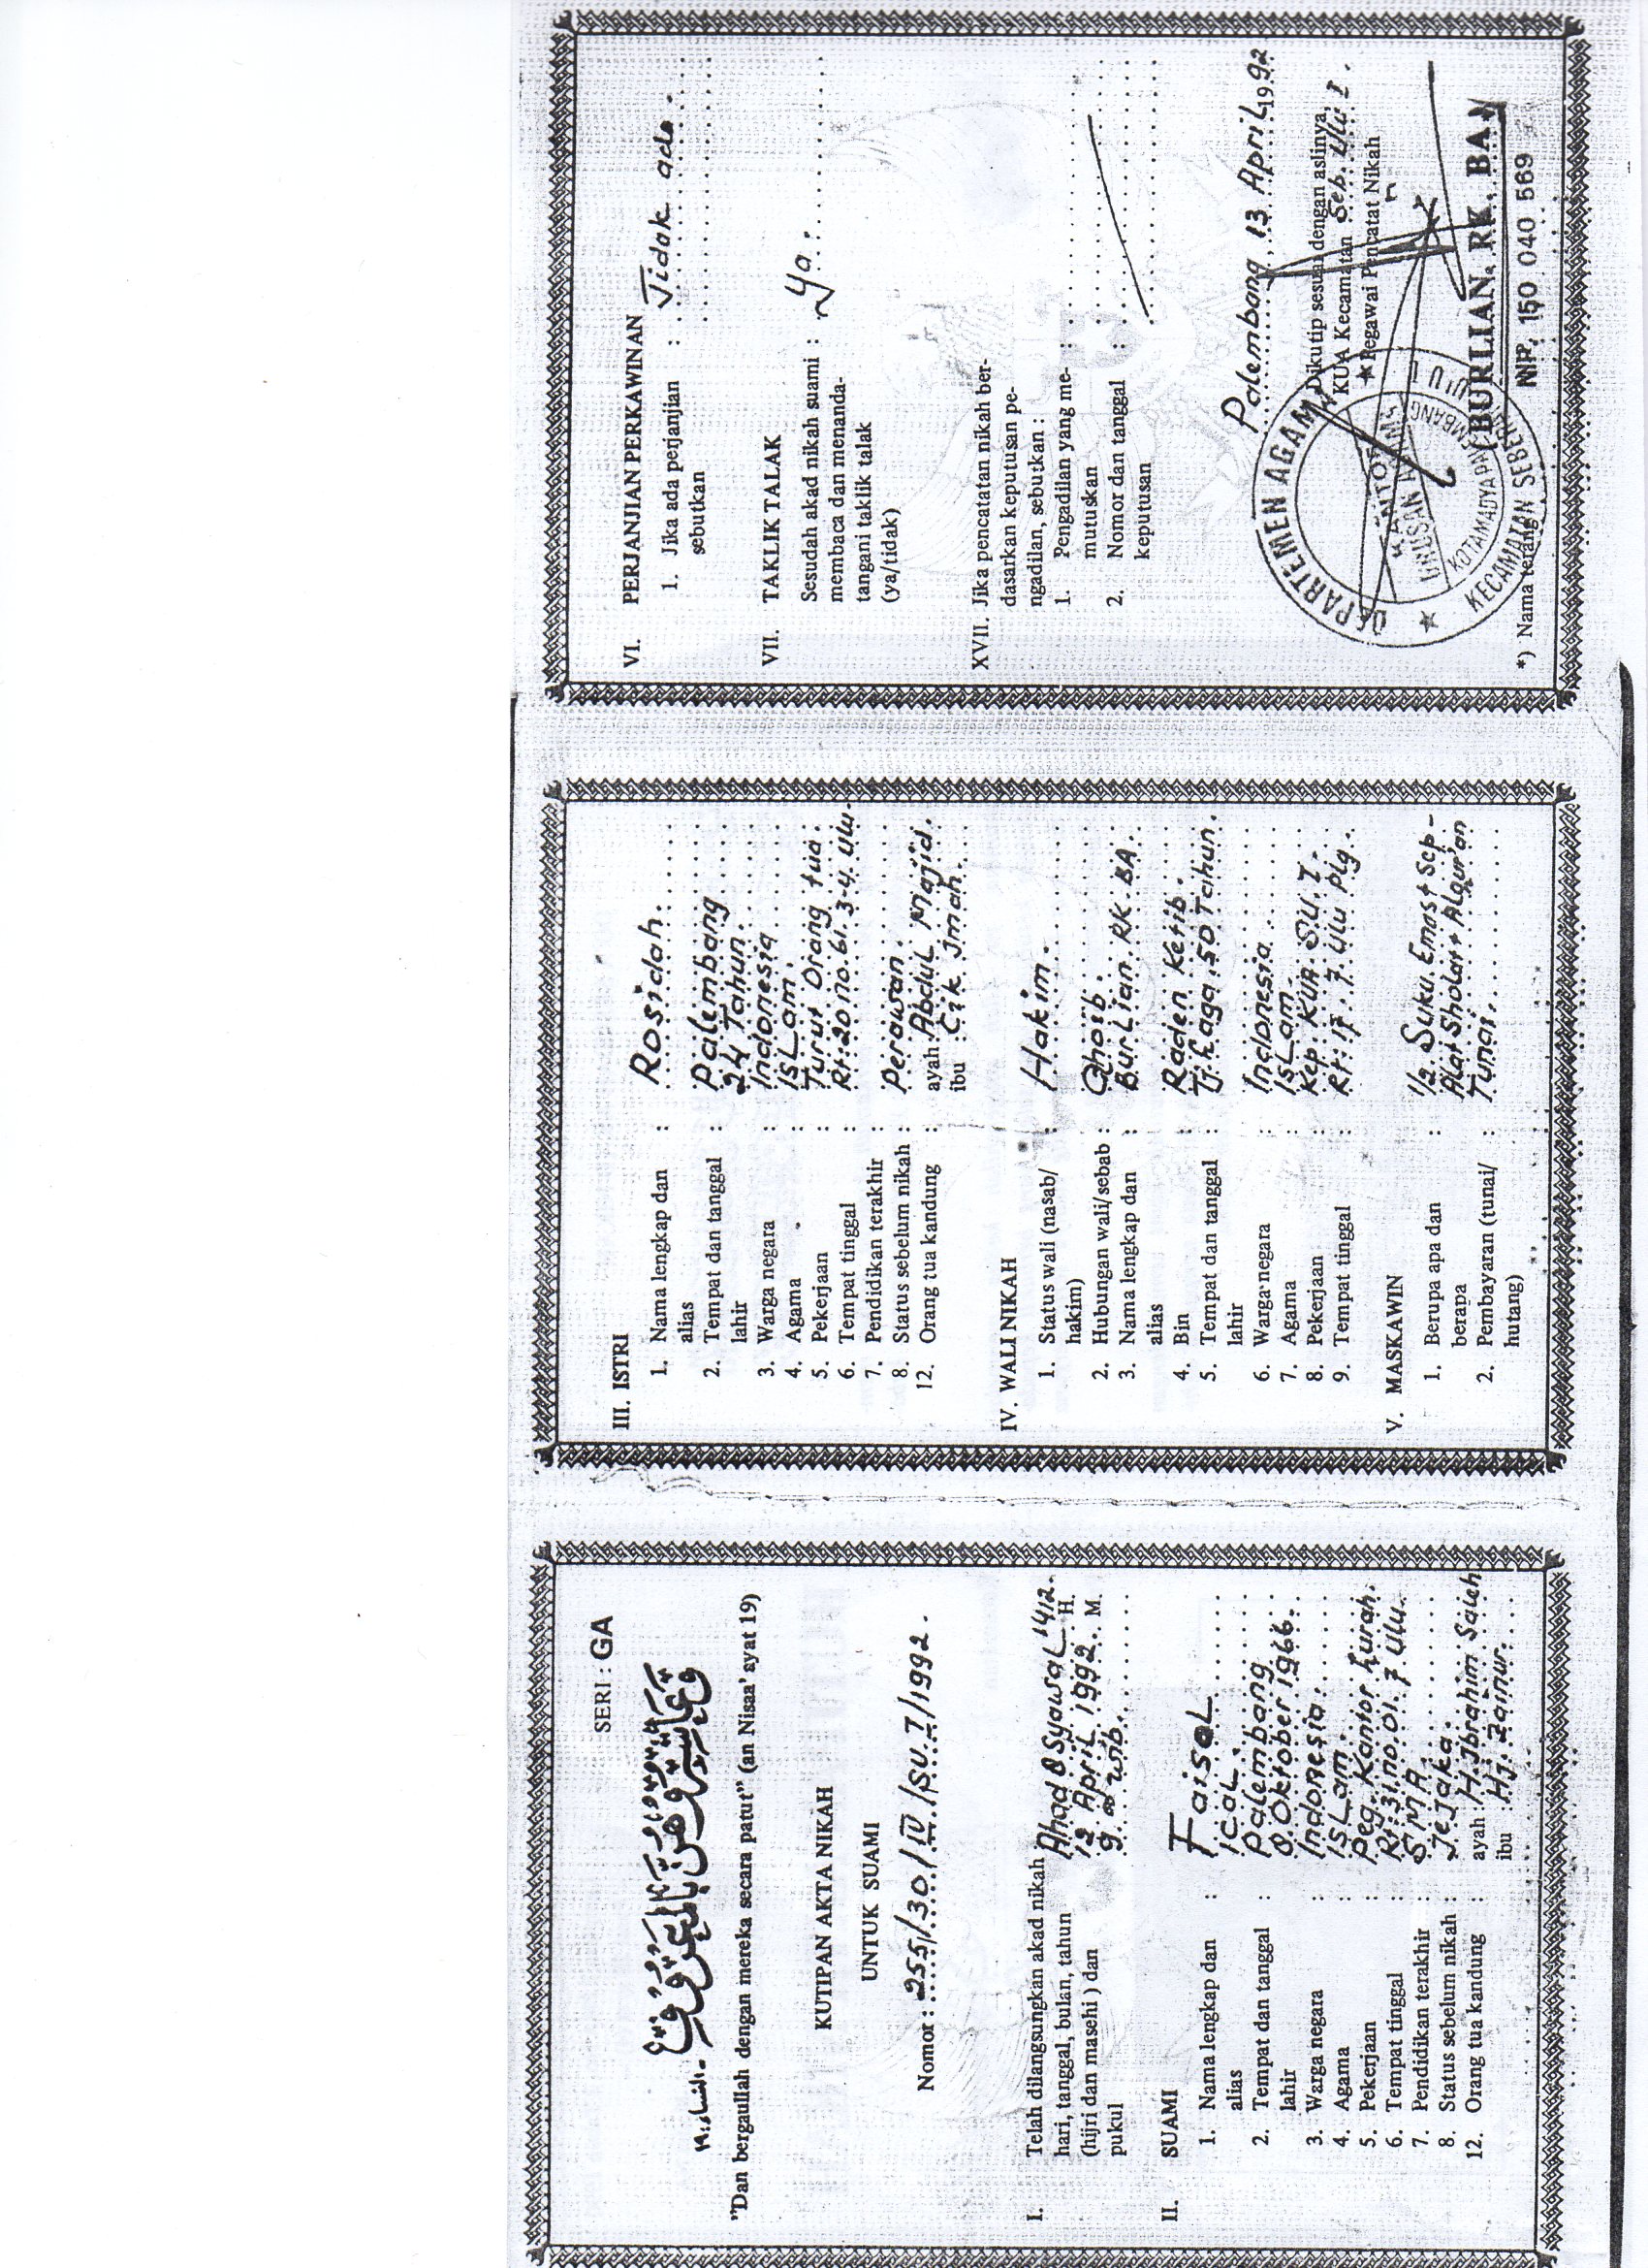 SERI : GA
وَعَاشِرُوهُنَّ بِالْمَعْرُوفِ
- النساء : ١٩
"Dan bergaullah dengan mereka secara patut" (an Nisaa' ayat 19)
KUTIPAN AKTA NIKAH
UNTUK SUAMI
Nomor : 255/30/IV/SU.I/1992.
I. Telah dilangsungkan akad nikah : Ahad 8 Syawal 1412.
hari, tanggal, bulan, tahun 12 April 1992. H.
(hijri dan masehi) dan 9.- wib. M.
pukul
II. SUAMI
1. Nama lengkap dan : Faisal
alias ical.
2. Tempat dan tanggal : Palembang
lahir 8 Oktober 1966.
3. Warga negara : Indonesia.
4. Agama : Islam.
5. Pekerjaan : Peg. Kantor Lurah.
6. Tempat tinggal : Rt. 31 no. 01. 7 Ulu.
7. Pendidikan terakhir : S M A.
8. Status sebelum nikah : Jejaka.
12. Orang tua kandung : ayah : H. Ibrahim Saleh
ibu : Hj. Zainur.
III. ISTRI
1. Nama lengkap dan : Rosidah.
alias
2. Tempat dan tanggal : Palembang
lahir 24 Tahun.
3. Warga negara : Indonesia
4. Agama : Islam.
5. Pekerjaan : Turut Orang tua.
6. Tempat tinggal : Rt. 20 no. 61. 3-4. Ulu.
7. Pendidikan terakhir :
8. Status sebelum nikah : Perawan.
12. Orang tua kandung : ayah : Abdul Majid.
ibu : Cik Imah.
IV. WALI NIKAH
1. Status wali (nasab/ : Hakim.
hakim)
2. Hubungan wali/sebab : Qhoib.
3. Nama lengkap dan : Burlian. RK. BA.
alias
4. Bin : Raden Ketib.
5. Tempat dan tanggal : 50 Tahun.
lahir
6. Warga negara : Indonesia.
7. Agama : Islam.
8. Pekerjaan : Kep. KUA. S.U. I.
9. Tempat tinggal : Rt. 17. 7. Ulu Plg.
V. MASKAWIN
1. Berupa apa dan : 1/2 Suku Emas + Sep-
berapa Alat Sholat + Alqur'an
2. Pembayaran (tunai/ : Tunai.
hutang)
VI. PERJANJIAN PERKAWINAN
1. Jika ada perjanjian : Tidak ada.
sebutkan
VII. TAKLIK TALAK
Sesudah akad nikah suami : Ya.
membaca dan menanda-
tangani taklik talak
(ya/tidak)
XVII. Jika pencatatan nikah ber-
dasarkan keputusan pe-
ngadilan, sebutkan :
1. Pengadilan yang me- :
mutuskan
2. Nomor dan tanggal :
keputusan
Palembang, 13 April 1992
Dikutip sesuai dengan aslinya
KUA Kecamatan Seb. Ulu I.
Pegawai Pencatat Nikah
DEPARTEMEN AGAMA
KANTOR
URUSAN AGAMA
KOTAMADYA PALEMBANG
KECAMATAN SEBERANG ULU I
(BURLIAN. RK. BA)
NIP. 150 040 569
*) Nama terang